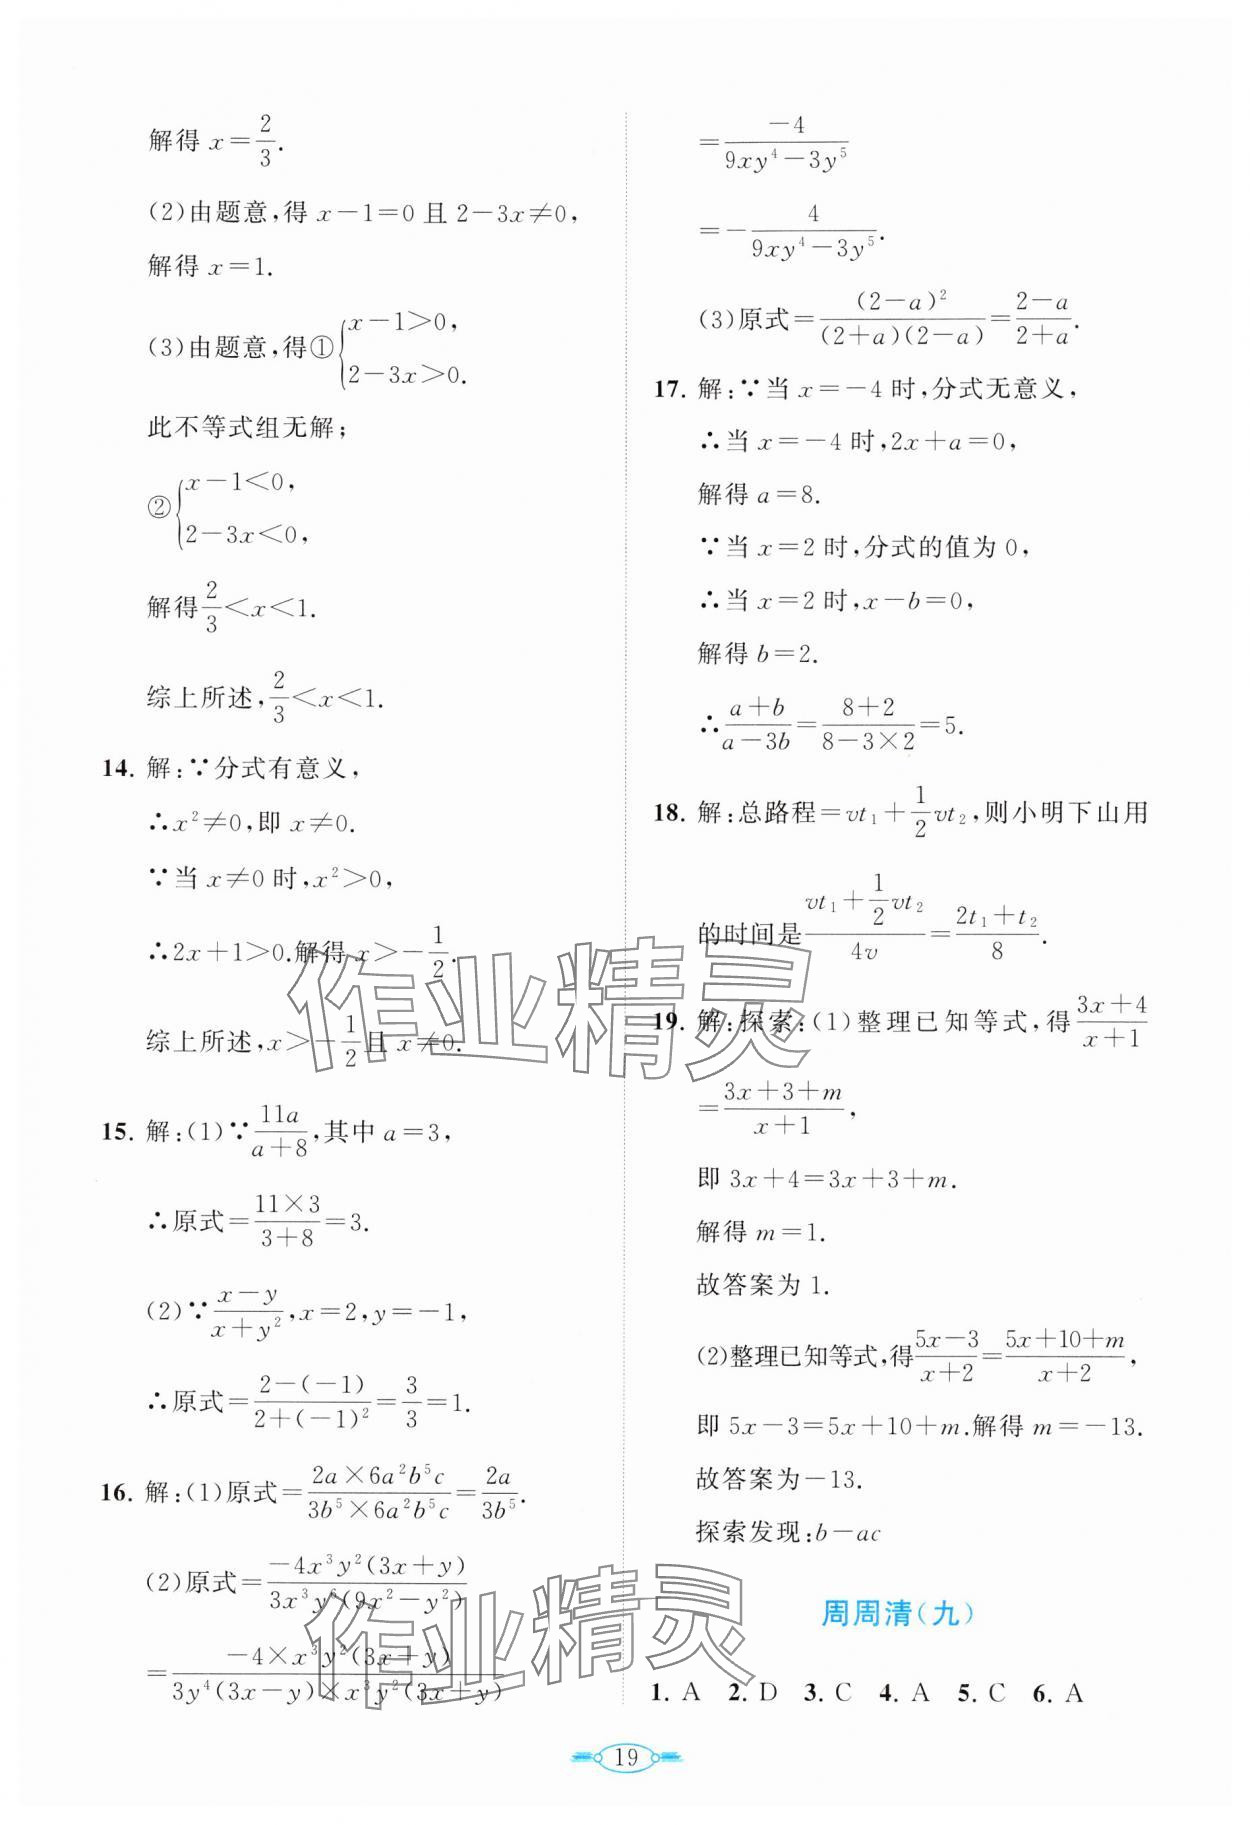 解得 x=2/3.
(2)由题意,得 x-1=0 且 2-3x≠0,
解得 x=1.
(3)由题意,得①{x-1>0, 2-3x>0.
此不等式组无解;
②{x-1<0, 2-3x<0,
解得 2/3<x<1.
综上所述, 2/3<x<1.
14. 解:∵分式有意义,
∴x²≠0,即 x≠0.
∵当 x≠0 时,x²>0,
∴2x+1>0.解得 x>-1/2.
综上所述,x>-1/2且 x≠0.
15. 解:(1)∵11a/(a+8),其中 a=3,
∴原式=(11×3)/(3+8)=3.
(2)∵(x-y)/(x+y²),x=2,y=-1,
∴原式=(2-(-1))/(2+(-1)²)=3/3=1.
16. 解:(1)原式=(2a×6a²b⁵c)/(3b⁵×6a²b⁵c)=2a/3b⁵.
(2)原式=(-4x³y²(3x+y))/(3x³y⁶(9x²-y²))
=(-4×x³y²(3x+y))/(3y⁴(3x-y)×x³y²(3x+y))
=-4/(9xy⁴-3y⁵)
=-4/(9xy⁴-3y⁵).
(3)原式=(2-a)²/((2+a)(2-a))=(2-a)/(2+a).
17. 解:∵当 x=-4 时,分式无意义,
∴当 x=-4 时,2x+a=0,
解得 a=8.
∵当 x=2 时,分式的值为 0,
∴当 x=2 时,x-b=0,
解得 b=2.
∴(a+b)/(a-3b)=(8+2)/(8-3×2)=5.
18. 解:总路程=vt₁+1/2vt₂,则小明下山用
的时间是(vt₁+1/2vt₂)/4v=(2t₁+t₂)/8.
19. 解:探索:(1)整理已知等式,得(3x+4)/(x+1)
=(3x+3+m)/(x+1),
即 3x+4=3x+3+m.
解得 m=1.
故答案为 1.
(2)整理已知等式,得(5x-3)/(x+2)=(5x+10+m)/(x+2),
即 5x-3=5x+10+m.解得 m=-13.
故答案为-13.
探索发现:b-ac
周周清(九)
1. A 2. D 3. C 4. A 5. C 6. A
19
作业精灵
作业精灵